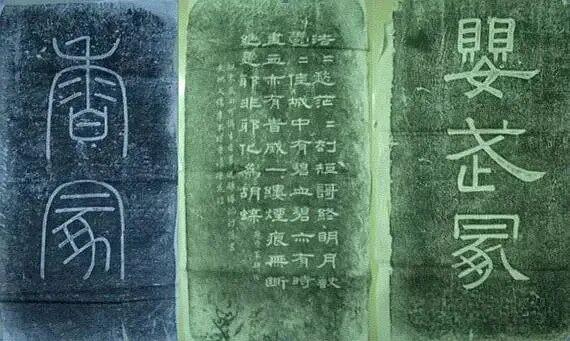 香冢
浩〻愁茫〻劫短哥終明月缺
鬱〻佳城中有碧血碧亦有時
盡血亦有時滅一縷煙痕無斷
絕是耶非耶化為胡蝶
嬰武冢